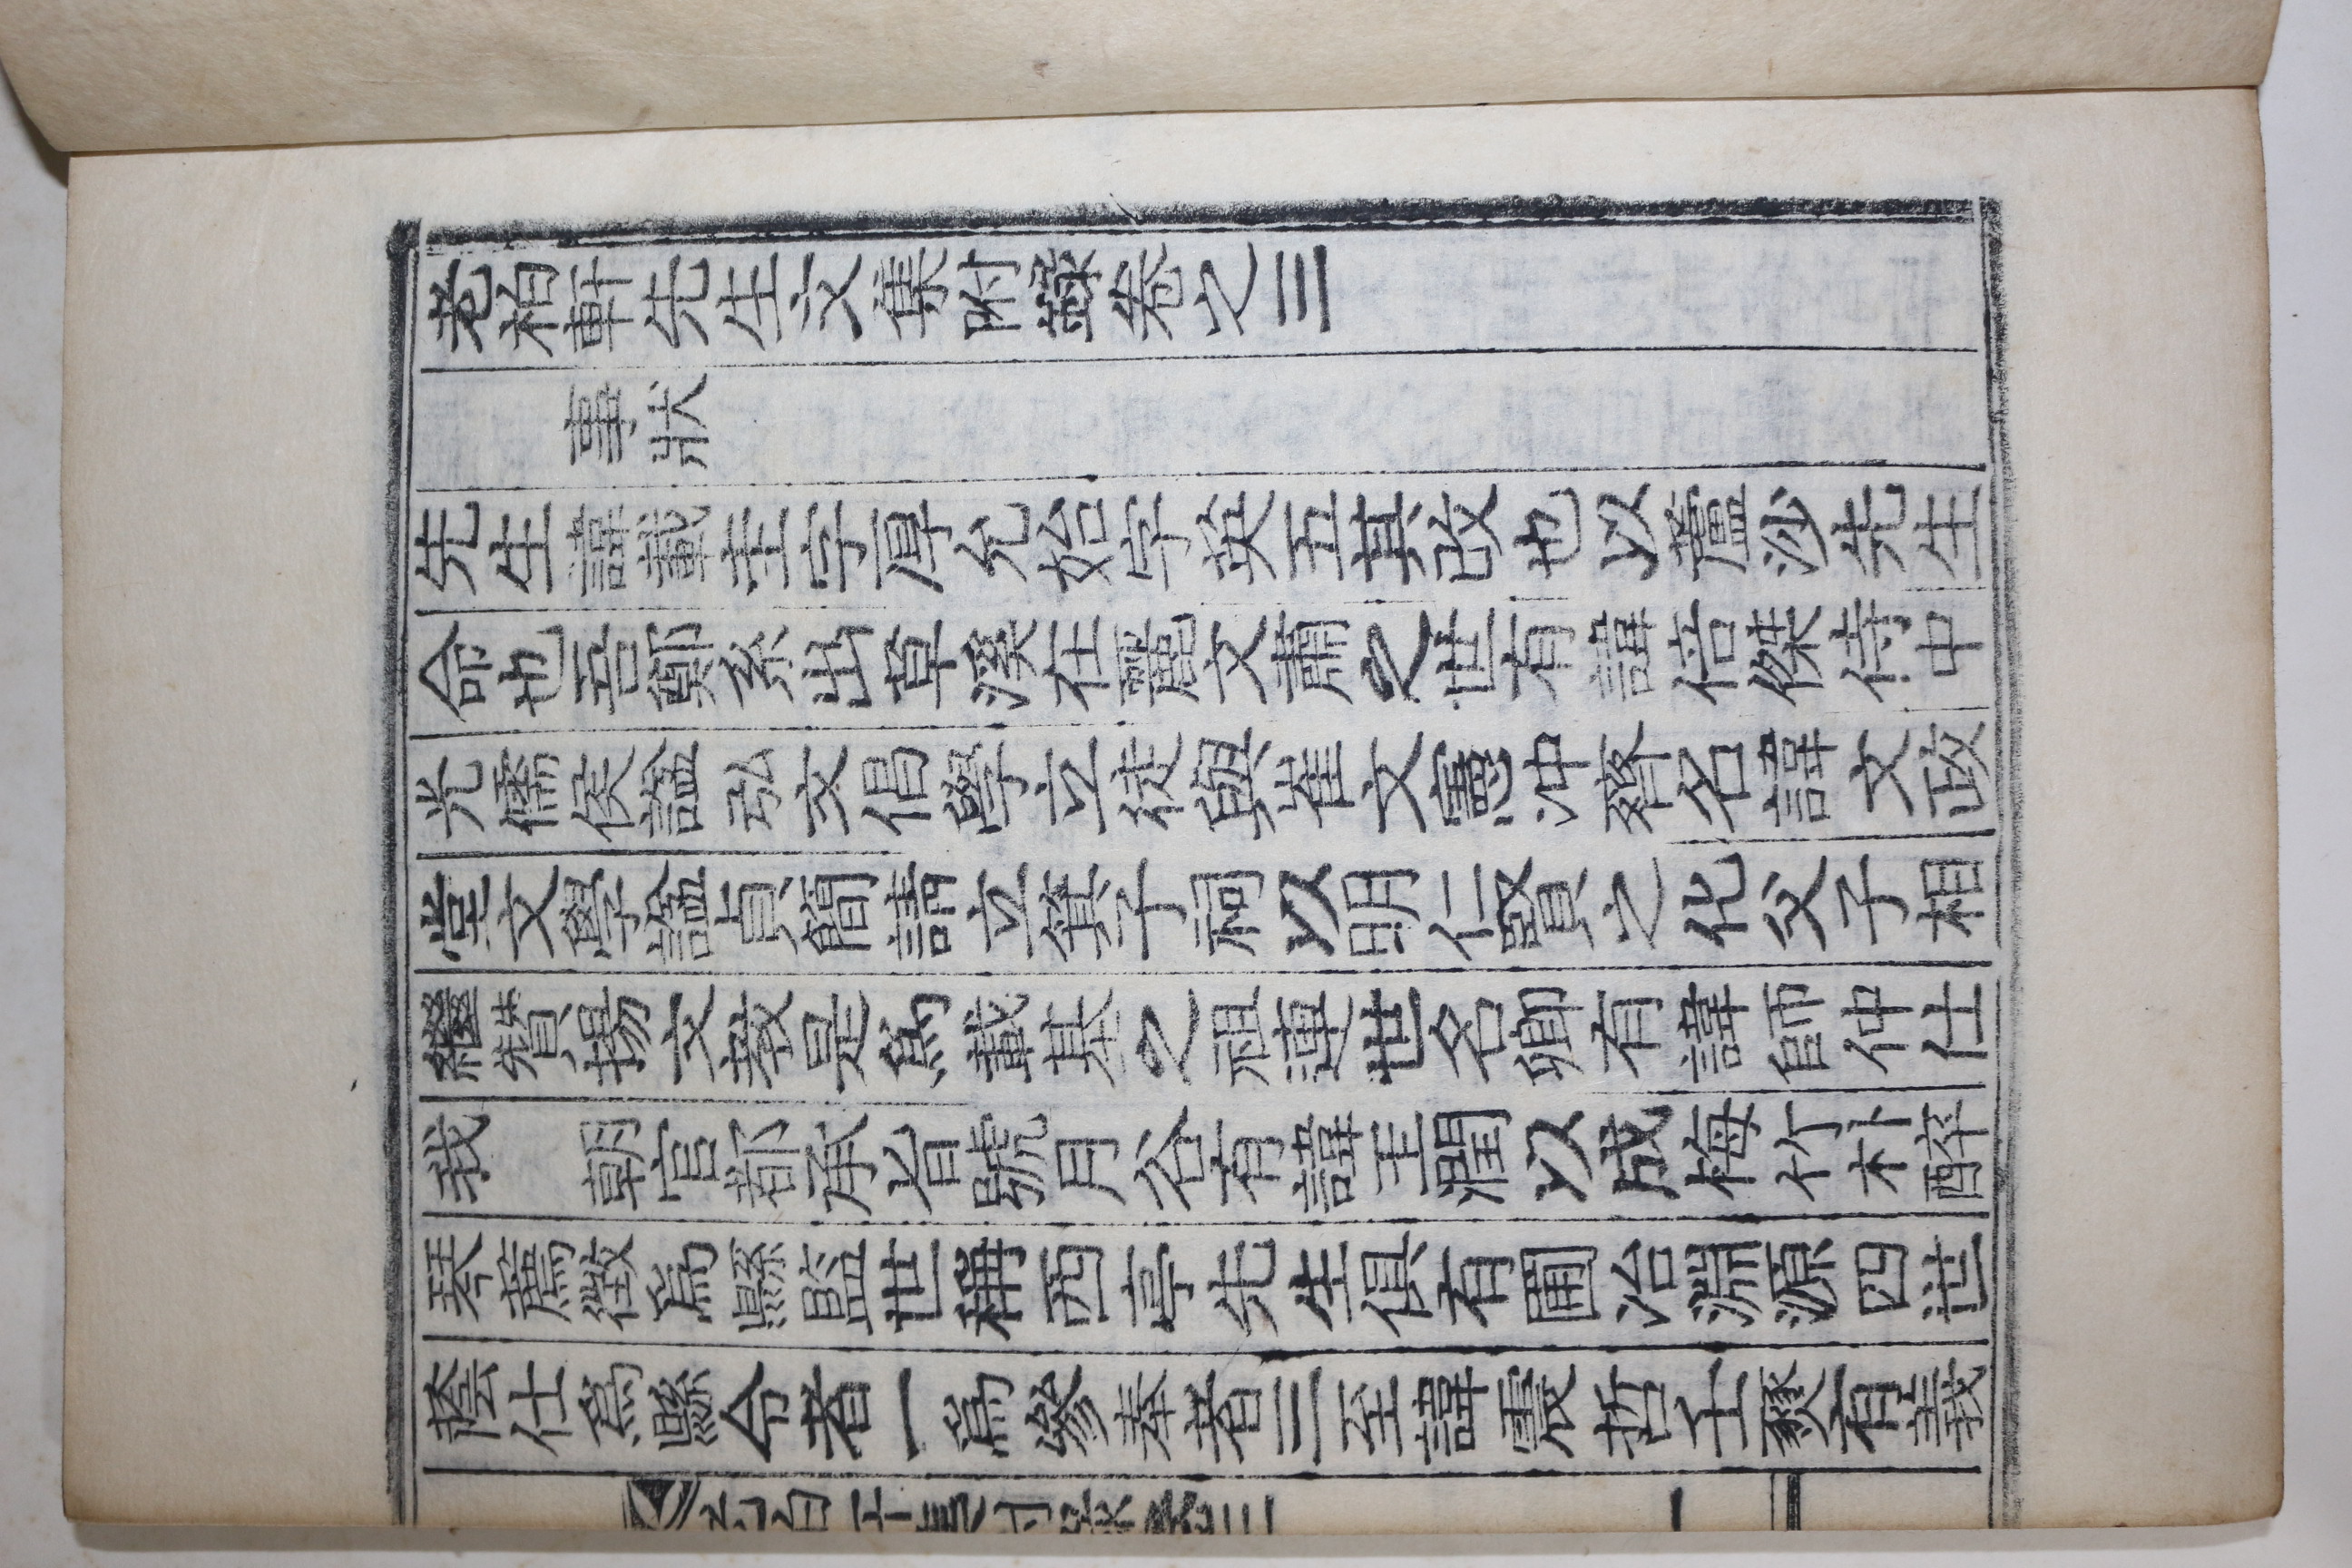 老栢軒先生文集附錄卷之三
事狀
先生諱載圭字厚允始字英五其改也以蘆沙先生
命也吾鄭系出草溪在麗文肅之世有諱倍傑侍中
光儒侯諡弘文倡學立徒與崔文憲冲齊名諱文政
堂文學諡貞簡請立箕子祠以明仁賢之化父子相
繼賛揚文敎是爲載基之祖連世名卿有諱師仲仕
我 朝官都承旨號月谷有諱玉潤以成梅竹朴醉
琴薦徵爲縣監世稱西亭先生俱有圃冶淵源四世
蔭仕爲縣令者一爲叅奉者三至諱震哲士燮有義
老白軒集附錄卷三 一